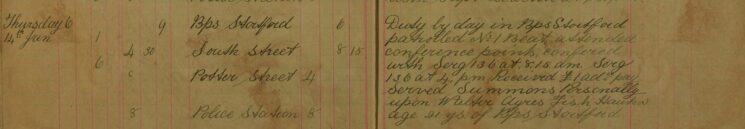 Thursday 6 9 Bps Stortford 6 Duty by day in Bps Stortford
14th Jan 1 patrolled No 1 Beat attended
4 30 South Street 8 15 conference point, confered
6 with Serg 136 at 8.15 am Serg
6 Potter Street 4 136 at 4. pm Received £1 adv pay
Served Summons Personally
upon Walter Ayres Fish Hawker
8 Police Station 8 age 21 yrs of Bps Stortford